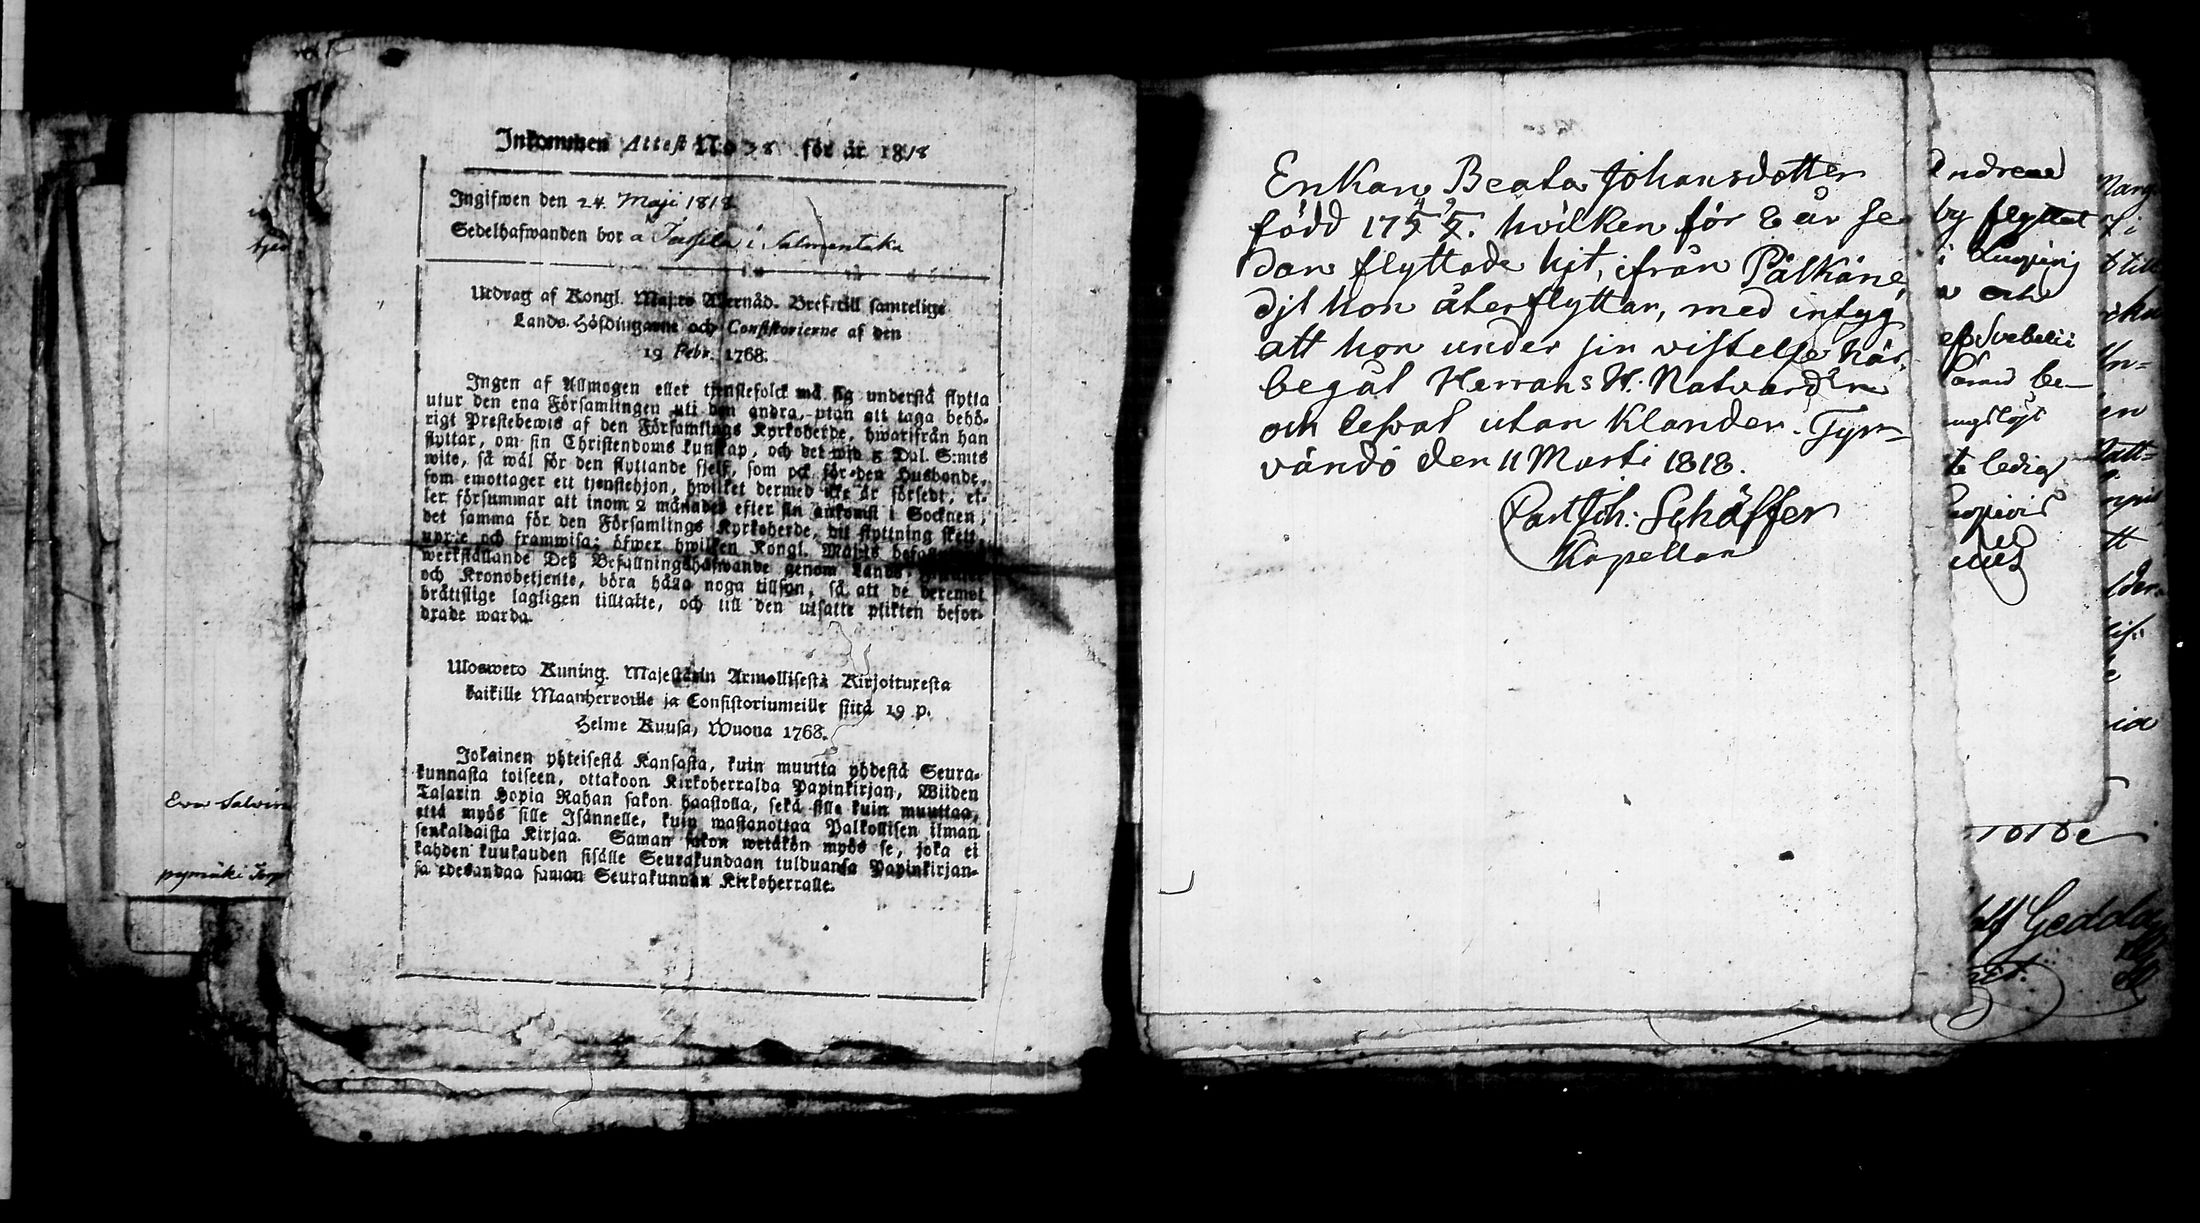 Inkommen Attest No 38 för år 1818
Ingifwen den 24. Maji 1818
Sedelhafwanden bor å i Salmentaka
Utdrag af Kongl. Maj:ts Allernåd. Bref till samtelige
Lands-Höfdingarne och Consistorierne af den
19 Febr. 1768.
Ingen af Allmogen eller tjenstefolck må sig understå flytta
utur den ena Församlingen uti den andra, utan att taga behö-
rigt Prestebewis af den Församlings Kyrkoherde, hwarifrån han
flyttar, om sin Christendoms kunskap, och det wid 5 Dal. S:mts
wite, så wäl för den flyttande sjelf, som ock för den Husbonde,
som emottager ett tjenstehjon, hwilket dermed icke är försedt, el-
ler försummar att inom 2 månader efter sin ankomst i Socknen,
det samma för den Församlings Kyrkoherde, dit flyttning skett,
upte och framwisa; öfwer hwilken Kongl. Maj:ts
werkställande Deß Befallningshafwande genom Lands,
och Kronobetjente, böra hålla noga tillsyn, så att de deremot
bråttslige lagligen tilltalte, och till den utsatte plikten befor-
drade warda.
Ulosweto Kuning. Majestätin Armollisesta Kirjoituxesta
kaikille Maanherroille ja Consistoriumeille siitä 19 p.
Helme Kuusa, Wuona 1768.
Jokainen yhteisestä Kansasta, kuin muutta yhdestä Seura-
kunnasta toiseen, ottakoon Kirkoherralda Papinkirjan, Wiiden
Talarin Hopia Rahan sakon haastolla, sekä sille kuin muuttaa,
että myös sille Isännelle, kuin wastanottaa Palkollisen ilman
senkaldaista Kirjaa. Saman sakon wetäkön myös se, joka ei
kahden kuukauden sisälle Seurakundaan tulduansa Papinkirjan-
sa edesandaa saman Seurakunnan Kirkoherralle.
Enkan Beata Johansdotter
född 17 hvilken för 8 år se
dan flyttade hit, ifrån Pälkäne,
dit hon återflyttar, med intyg
att hon under sin vistelse här
begåt Herrans H. Natvard
och lefvat utan klander. Tyr-
vändö den 11 Marti 1818.
Carl Joh: Schäffer
Kapellan
Eva Salvin
pymäki Torp
Andreæ
by flyttat
te ledig
Gedda